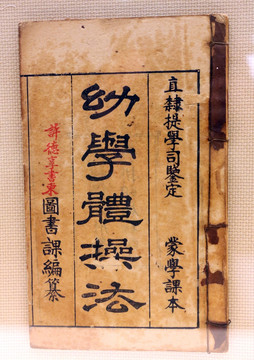 直隸提學司鑒定
蒙學課本
幼學體操法
圖書課編纂